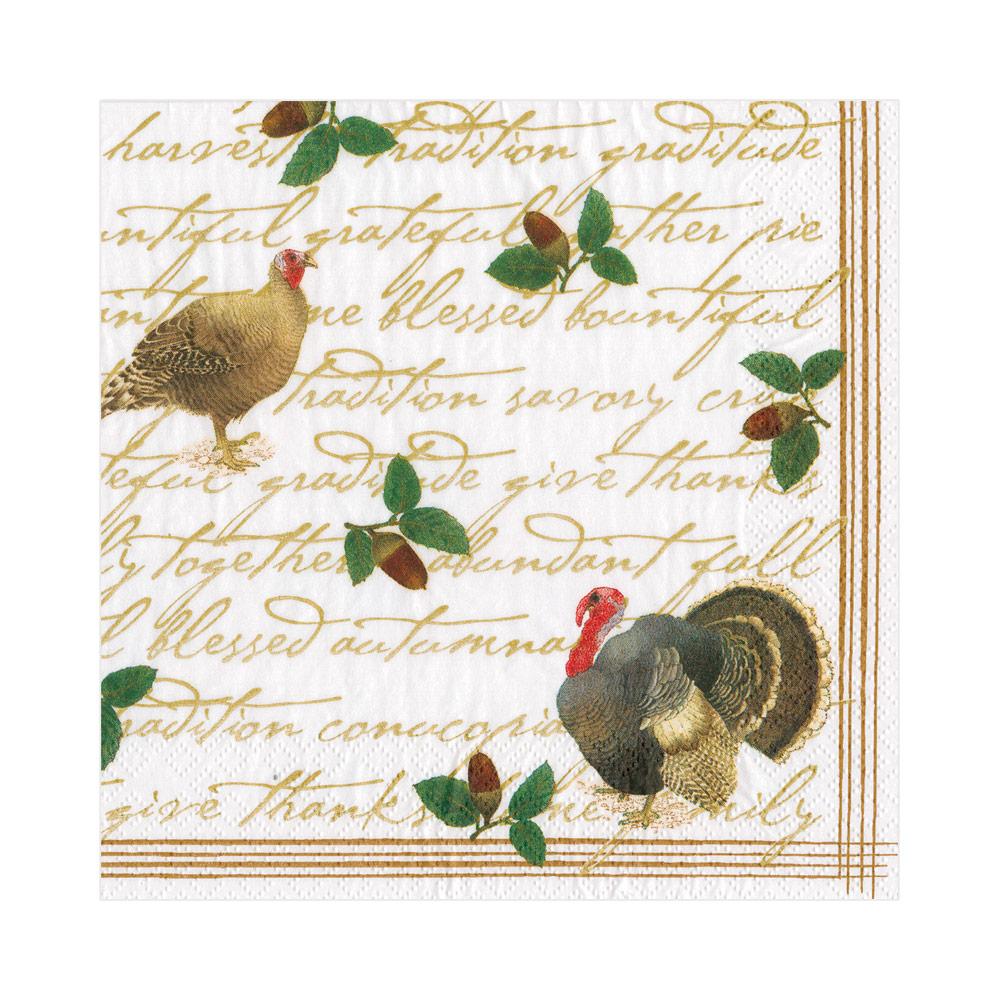 harvest tradition gratitude
ntiful grateful gather pie
me blessed bountiful
tradition savory
teful gratitude give thanks
ly together abundant fall
l blessed autumna
radition cornucopia
give thanks mily